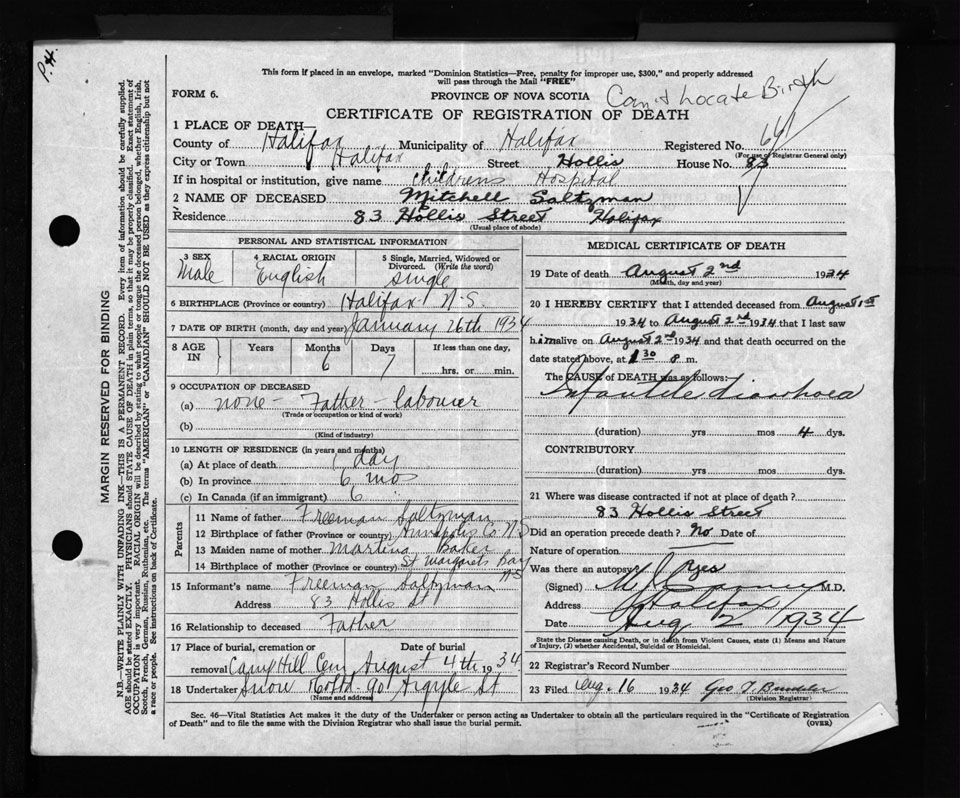 P.H.
This form if placed in an envelope, marked "Dominion Statistics—Free, penalty for improper use, $300," and properly addressed
will pass through the Mail "FREE"
FORM 6.
PROVINCE OF NOVA SCOTIA
Can't Locate Birth
CERTIFICATE OF REGISTRATION OF DEATH
1 PLACE OF DEATH—
County of Halifax Municipality of Halifax Registered No.
(For use of Registrar General only)
City or Town Halifax Street Hollis House No. 83
If in hospital or institution, give name Childrens Hospital
2 NAME OF DECEASED Mitchell Saltzman
Residence 83 Hollis Street Halifax
(Usual place of abode)
PERSONAL AND STATISTICAL INFORMATION
3 SEX Male
4 RACIAL ORIGIN English
5 Single, Married, Widowed or Divorced. (Write the word) Single
6 BIRTHPLACE (Province or country) Halifax N.S.
7 DATE OF BIRTH (month, day and year) January 26th 1934
8 AGE IN Years Months 6 Days 7 If less than one day, hrs. or min.
9 OCCUPATION OF DECEASED
(a) none - Father - labourer
(Trade or occupation or kind of work)
(b)
(Kind of industry)
10 LENGTH OF RESIDENCE (in years and months)
(a) At place of death 1 day
(b) In province 6 mos
(c) In Canada (if an immigrant) 6 "
Parents
11 Name of father Freeman Saltzman
12 Birthplace of father (Province or country) Annapolis Co N.S
13 Maiden name of mother Baker
14 Birthplace of mother (Province or country) St Margarets Bay NS
15 Informant's name Freeman Saltzman
Address 83 Hollis St
16 Relationship to deceased Father
17 Place of burial, cremation or removal Camp Hill Cem Date of burial August 4th 1934
18 Undertaker Snow 90 Argyle St
(Name and address)
MEDICAL CERTIFICATE OF DEATH
19 Date of death August 2nd 1934
(Month, day and year)
20 I HEREBY CERTIFY that I attended deceased from August 1st
1934 to August 2nd 1934 that I last saw
him alive on August 2nd 1934 and that death occurred on the
date stated above, at 1 30 m.
The CAUSE of DEATH was as follows:
Infantile diarrhoea
(duration) yrs mos 4 dys.
CONTRIBUTORY
(duration) yrs mos dys.
21 Where was disease contracted if not at place of death?
83 Hollis Street
Did an operation precede death? No Date of
Nature of operation
Was there an autopsy? yes
(Signed) M.D.
Address Halifax
Date Aug 2 1934
State the Disease causing Death, or in death from Violent Causes, state (1) Means and Nature
of Injury, (2) whether Accidental, Suicidal or Homicidal.
22 Registrar's Record Number
23 Filed Aug. 16 1934 Geo
(Division Registrar)
Sec. 46—Vital Statistics Act makes it the duty of the Undertaker or person acting as Undertaker to obtain all the particulars required in the "Certificate of Registration
of Death" and to file the same with the Division Registrar who shall issue the burial permit.
(OVER)
MARGIN RESERVED FOR BINDING
N.B.—WRITE PLAINLY WITH UNFADING INK—THIS IS A PERMANENT RECORD. Every item of information should be carefully supplied.
AGE should be stated EXACTLY. PHYSICIANS should STATE CAUSE OF DEATH in plain terms, so that it may be properly classified. Exact statement of
OCCUPATION is very important. RACIAL ORIGIN will be described by stating to what people or tongue the deceased person belonged, whether English, Irish,
Scotch, French, German, Russian, Ruthenian, etc. The terms "AMERICAN" or "CANADIAN" SHOULD NOT BE USED as they express citizenship but not
a race or people. See instructions on back of Certificate.